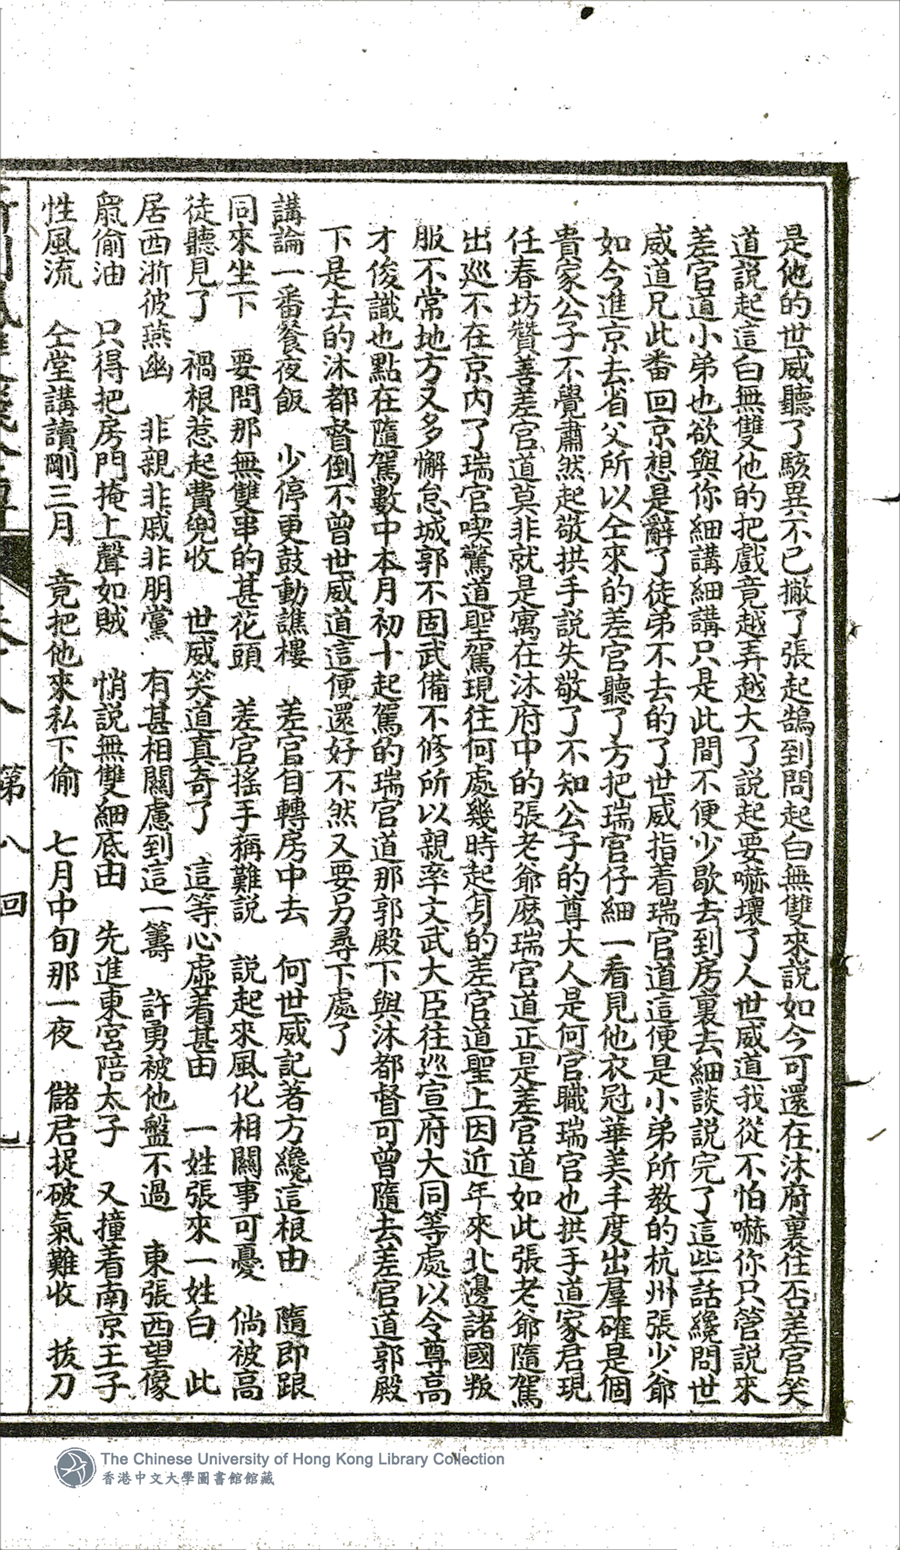 是他的世威聽了駭異不已撇了張起鵠到問起白無雙來說如今可還在沐府裏住否差官笑
道說起這白無雙他的把戲竟越弄越大了說起要嚇壞了人世威道我從不怕嚇你只管說來
差官道小弟也欲與你細講細講只是此間不便少歇去到房裏去細談說完了這些話纔問世
威道兄此番回京想是辭了徒弟不去的了世威指着瑞官道這便是小弟所教的杭州張少爺
如今進京去省父所以仝來的差官聽了方把瑞官仔細一看見他衣冠華美丰度出羣確是個
貴家公子不覺肅然起敬拱手説失敬了不知公子的尊大人是何官職瑞官也拱手道家君現
任春坊贊善差官道莫非就是寓在沐府中的張老爺麽瑞官道正是差官道如此張老爺隨駕
出巡不在京內了瑞官喫驚道聖駕現往何處幾時起身的差官道聖上因近年來北邊諸國叛
服不常地方又多懈怠城郭不固武備不修所以親率文武大臣往巡宣府大同等處以今尊高
才俊識也點在隨駕數中本月初十起駕的瑞官道那郭殿下與沐都督可曾隨去差官道郭殿
下是去的沐都督倒不曾世威道這便還好不然又要另尋下處了
講論一番餐夜飯　少停更鼓動譙樓　差官自轉房中去　何世威記著方纔這根由　隨即跟
同來坐下　要問那無雙串的甚花頭　差官搖手稱難説　説起來風化相關事可憂　倘被高
徒聽見了　禍根惹起費兜收　世威笑道真奇了　這等心虛着甚由　一姓張來一姓白　此
居西浙彼燕幽　非親非戚非朋黨　有甚相關慮到這一籌　許勇被他盤不過　東張西望像
鼠偷油　只得把房門掩上聲如賊　悄説無雙細底由　先進東宮陪太子　又撞着南京王子
性風流　仝堂講讀剛三月　竟把他來私下偷　七月中旬那一夜　儲君捉破氣難收　拔刀
卷八　第八回
The Chinese University of Hong Kong Library Collection
香港中文大學圖書館館藏